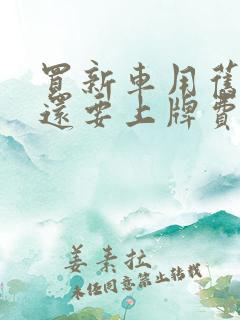 買新車用舊
還要上牌費
姜素拉
未經同意禁止转载